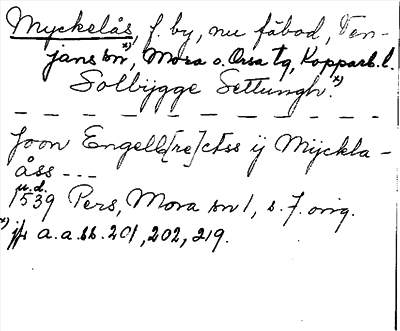 Myckelås, f. by, nu fäbod, Ven-
jans sn *), Mora o. Orsa tg, Kopparb. l.
Solbygge Settungh. *)
Joon Engelb[re]ctss ij Myckla-
åss ---
u.d.
1539 Pers, Mora sn 1, s. 7. orig.
*) jfr a.a. ss. 201, 202, 219.